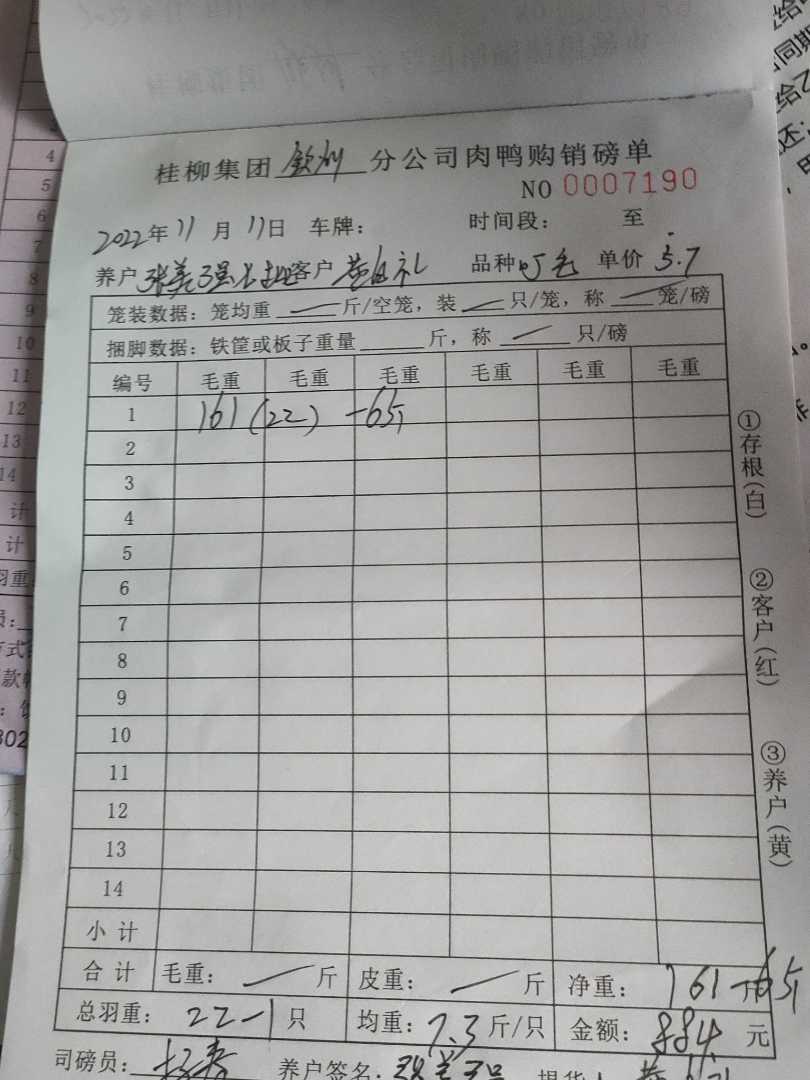 桂柳集团 钦州 分公司肉鸭购销磅单
NO 0007190
2022年 11 月 11日 车牌： 时间段： 至
养户 张美强 客户 品种 单价 5.7
笼装数据：笼均重 斤/空笼，装 只/笼，称 笼/磅
捆脚数据：铁筐或板子重量 斤，称 只/磅
编号 毛重 毛重 毛重 毛重 毛重 毛重
1 161 (22) -6斤
2
3
4
5
6
7
8
9
10
11
12
13
14
小计
合计 毛重： 斤 皮重： 斤 净重： 161-6斤
总羽重： 22-1 只 均重： 7.3 斤/只 金额： 884 元
司磅员： 养户签名： 张美强
①存根(白)
②客户(红)
③养户(黄)
4
5
6
7
8
9
10
11
12
13
14
计
计